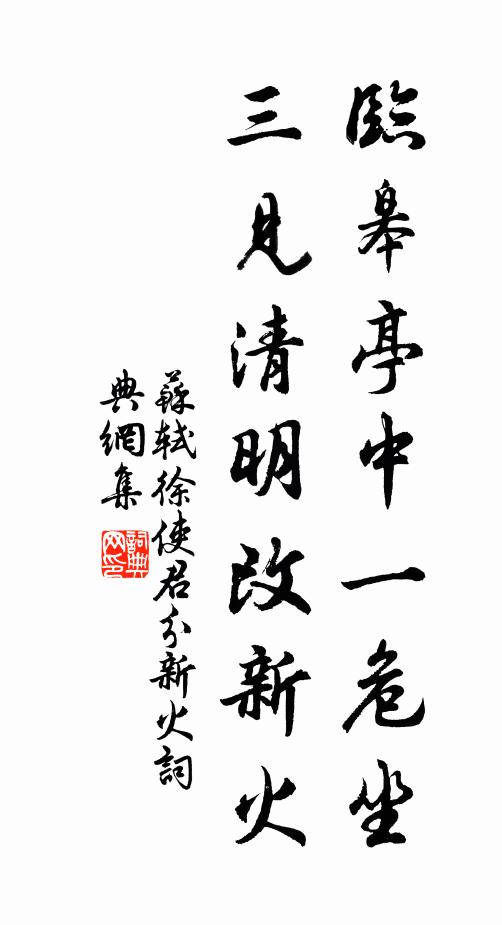 臨皋亭中一危坐
三見清明改新火
蘇軾徐使君分新火詞
典網集
詞典
网印